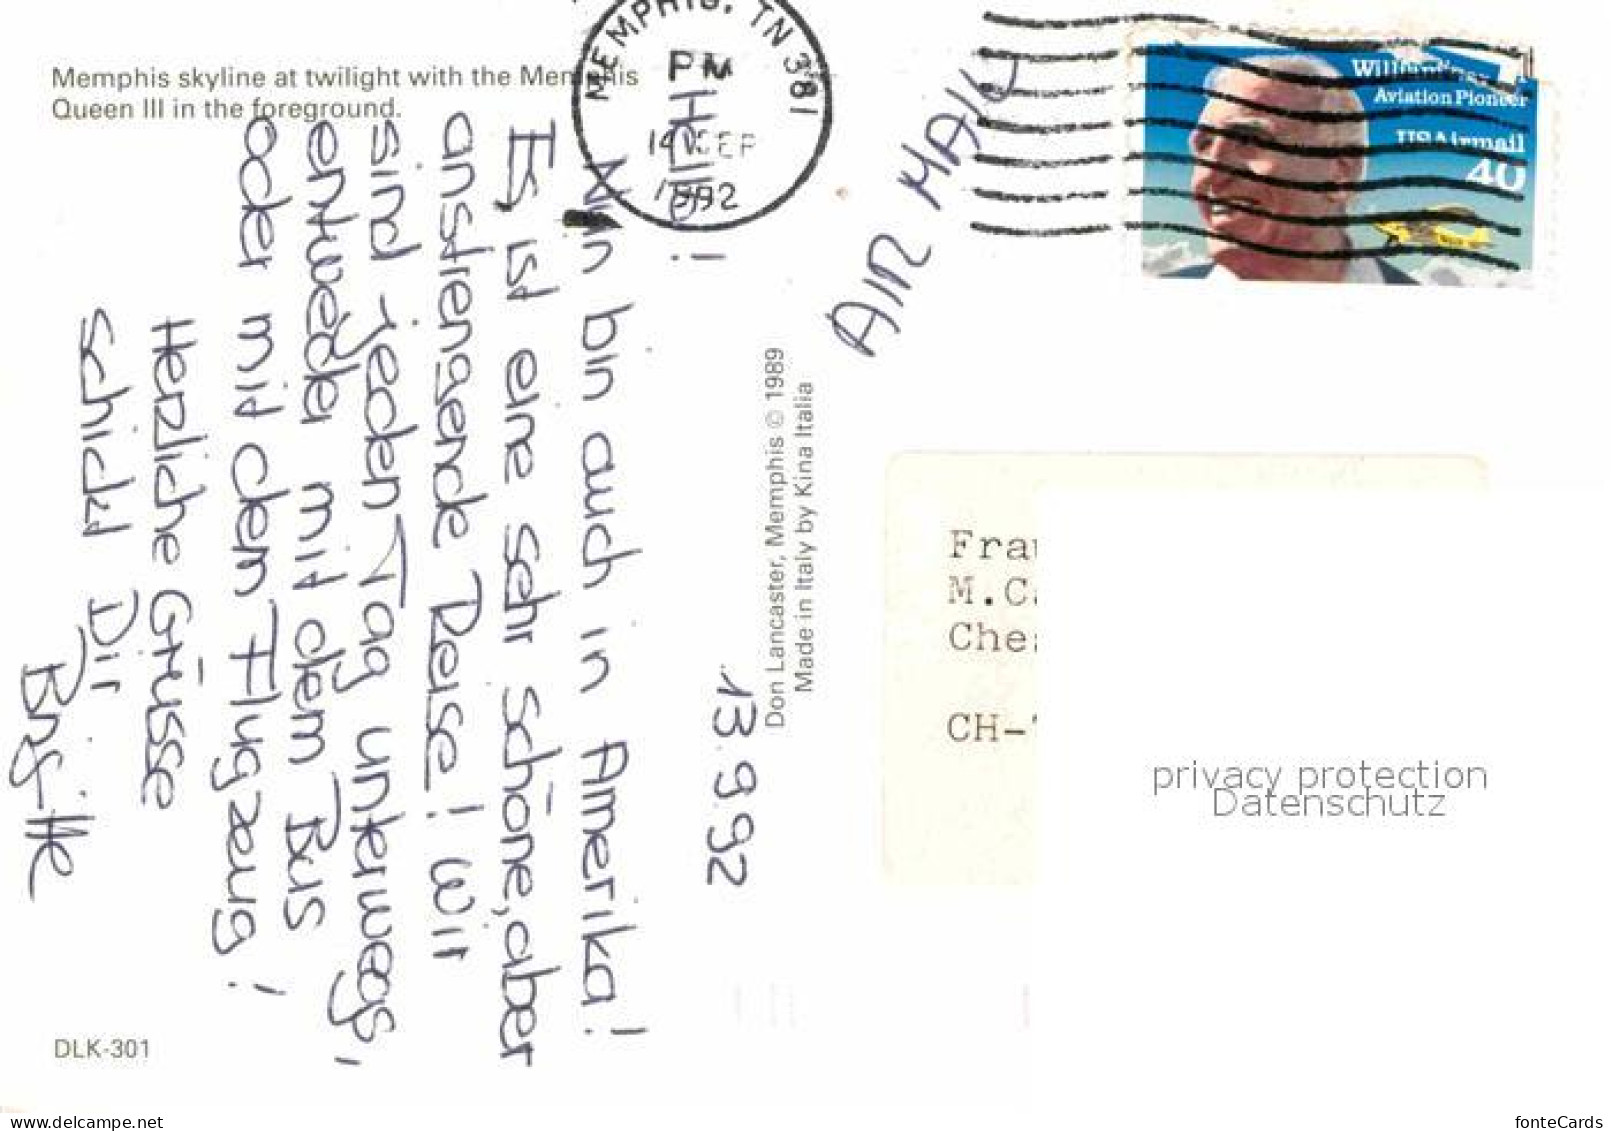 Memphis skyline at twilight with the Memphis
Queen III in the foreground.
MEMPHIS, TN 381
PM
14 SEP
1992
Aviation Pioneer
US Airmail
40
AIR MAIL
13.9.92
Hello!
Nun bin auch in Amerika!
Es ist eine sehr schöne, aber
anstrengende Reise! Wir
sind jeden Tag unterwegs,
entweder mit dem Bus
oder mit dem Flugzeug!
Herzliche Grüsse
schickt Dir
Brigitte
Don Lancaster, Memphis © 1989
Made in Italy by Kina Italia
Frau
M.C
Che
CH-
privacy protection
Datenschutz
DLK-301
www.delcampe.net
fonteCards